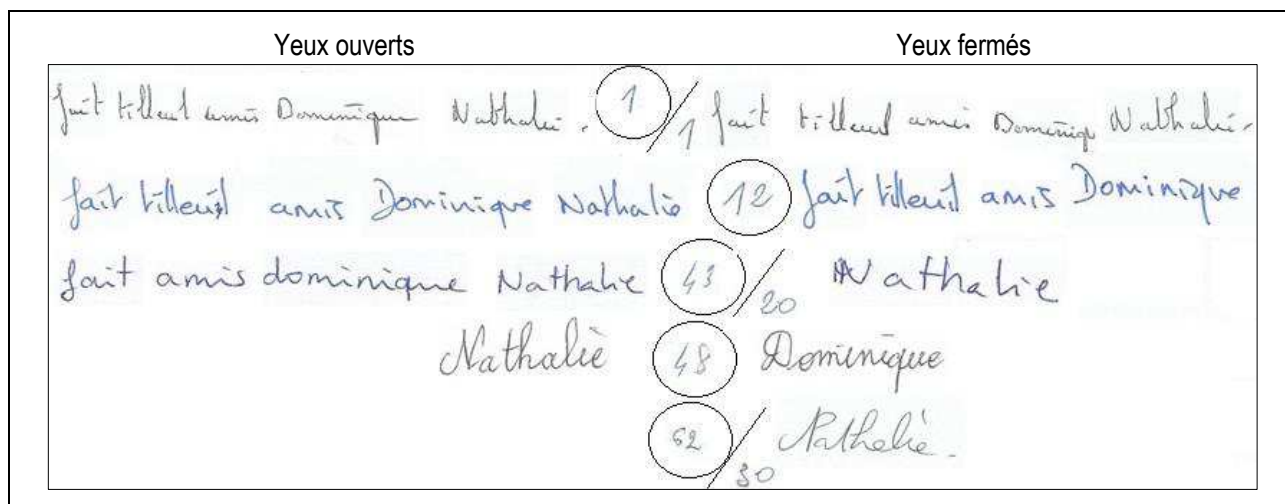 Yeux ouverts Yeux fermés
fait tilleul amis Dominique Nathalie. 1/1 fait tilleul amis Dominiq Nathalie.
fait tilleuil amis Dominique Nathalie 12 fait tilleuil amis Dominique
fait amis dominique Nathalie 43/20 Nathalie
Nathalie 48 Dominique
62/30 Nathalie.